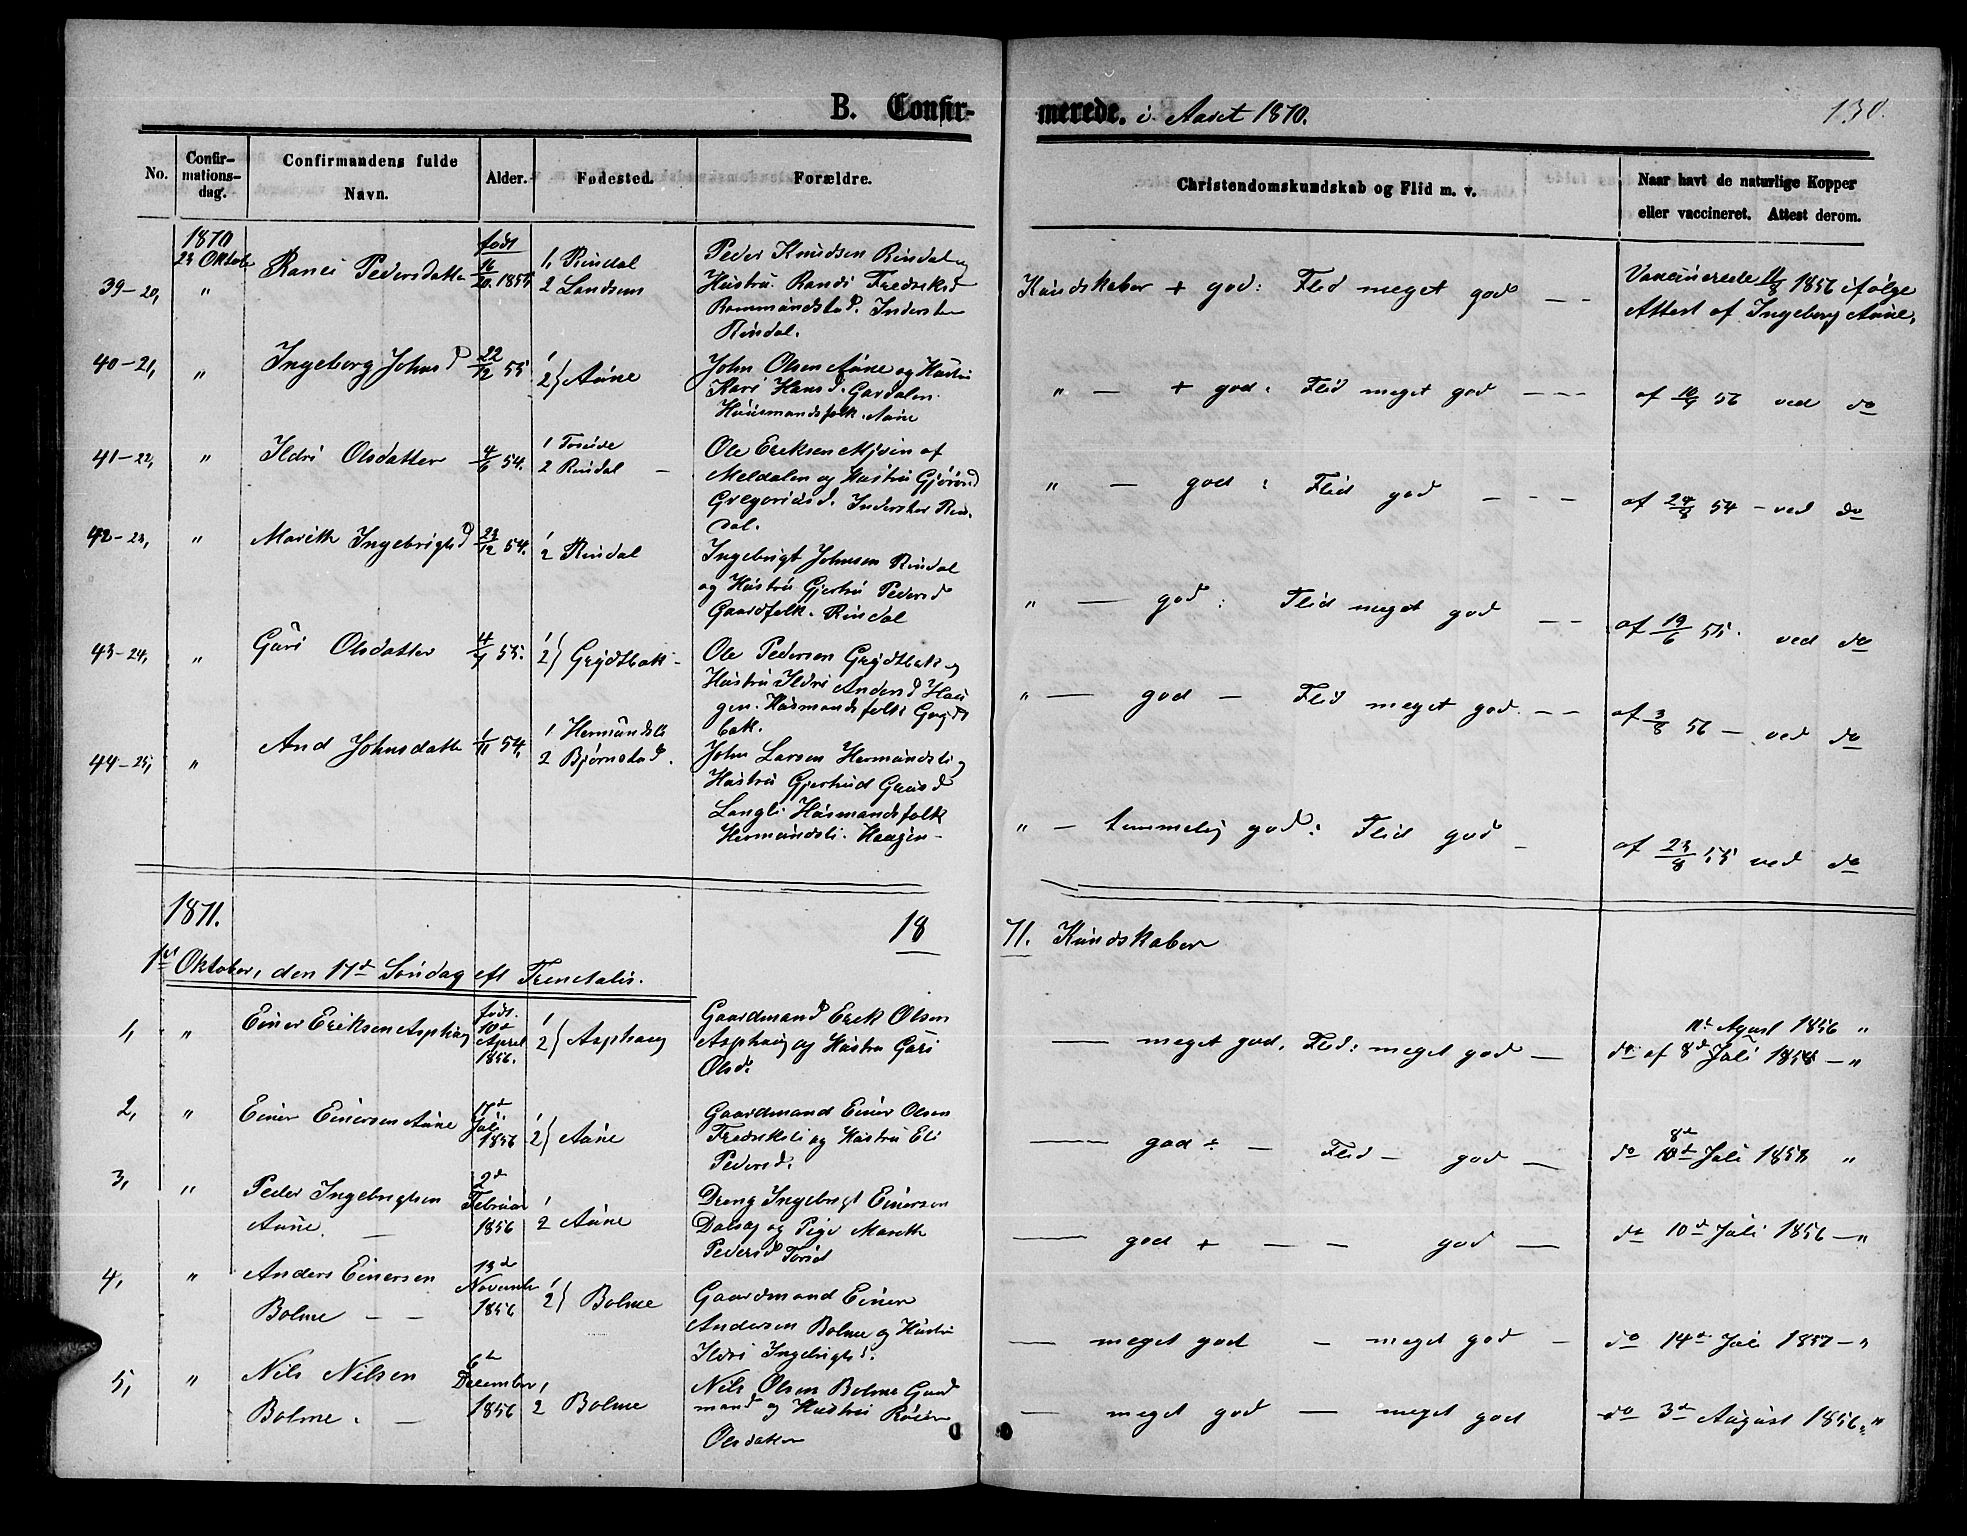 B. Confir-
merede. i Aaret 1870.
130.
No.
Confir-
mations-
dag.
Confirmandens fulde
Navn.
Alder.
Fødested.
Forældre.
Christendomskundskab og Flid m. v.
Naar havt de naturlige Kopper
eller vaccineret. Attest derom.
1870
23 Oktob
39-20, " Pedersdatter født 16/20 1855 1, Rindal
2 Landsem
Peder Knudsen Rindal og
Hustru Randi Fredriksd
Inderster
Rindal.
Kundskaber + god: Flid meget god — —
Vaccinerede 11/8 1856 ifølge
Attest af Ingeborg Aune,
40-21, " Ingeborg Johnsd 22/12 55 1
2} Aune
John Olsen Aune og Hustru
Kari Hansd. Gardalen.
Huusmandsfolk. Aune
" — + god: Flid meget god — — —
af 10/9 56 ved do
41-22, " Ildri Olsdatter 4/6 54. 1
2 Rindal —
Ole Eriksen af
Meldalen og Hustru
Gregoriusd. Inderster Rin-
dal.
" — god : Flid god — — —
af 24/8 54 — ved do
42-23, " Marith Ingebrigtsd 23/12 54. 1
2 Rindal
Ingebrigt Johnsen Rindal
og Hustru Gjertru Pedersd
Gaardfolk. Rindal
" — god : Flid meget god — —
af 19/6 55. ved do
43-24, " Guri Olsdatter 4/9 55. 1
2} Grydtbak -
Ole Pedersen Grydtbak og
Hustru Ildri Andersd Hau
gen. Husmandsfolk Grydt
bak.
" — god — Flid meget god. — —
af 3/8 56 — ved do
44-25, " And Johnsdatter 1/11 54, 1 Hermundsli
2 Bjørnstad.
John Larsen Hermundsli og
Hustru Gjertrud
Langli Husmandsfolk
Hermundsli. Haugen —
" — temmelig god : Flid god —
af 23/8 55 ved do
1871.
18
71. Kundskaber
1ste Oktober, den 17de Søndag eft Trinitatis.
1, " Einer Eriksen Asphaug født.
10de
April
1856.
1
2} Asphaug
Gaardmand Erik Olsen
Asphaug og Hustru Guri
Olsd.
— meget god, Flid: meget god —
11te Agust 1856 "
do af 8de Juli 1858 — "
2, " Einer Einersen Aune 17de
Juli
1856
1
2} Aune
Gaardmand Einer Olsen
Fredriksli og Hustru Eli
Pedersd.
— god ÷ — Flid — god —
8de
do 10de Juli 1857 "
3, " Peder Ingebrigtsen
Aune. —
2de
Februar
1856
1
2 Aune
Dreng Ingebrigt Einersen
og Pige Marith
Pedersd
— god + — — god —
do 10de Juli 1856 — "
4, " Anders Einersen
Bolme — —
13de
November
1856
1
2} Bolme
Gaardmand Einer
Andersen Bolme og Hustru
Ildri Ingebrigtsd.
— meget god — meget god —
do 14de Juli 1857 — "
5, " Nils Nilsen
Bolme. —
6te
December
1856
1
2 Bolme
Nils Olsen Bolme Gaard
mand og Hustru
Olsdatter
— meget god — meget god
do 3de August 1856. "